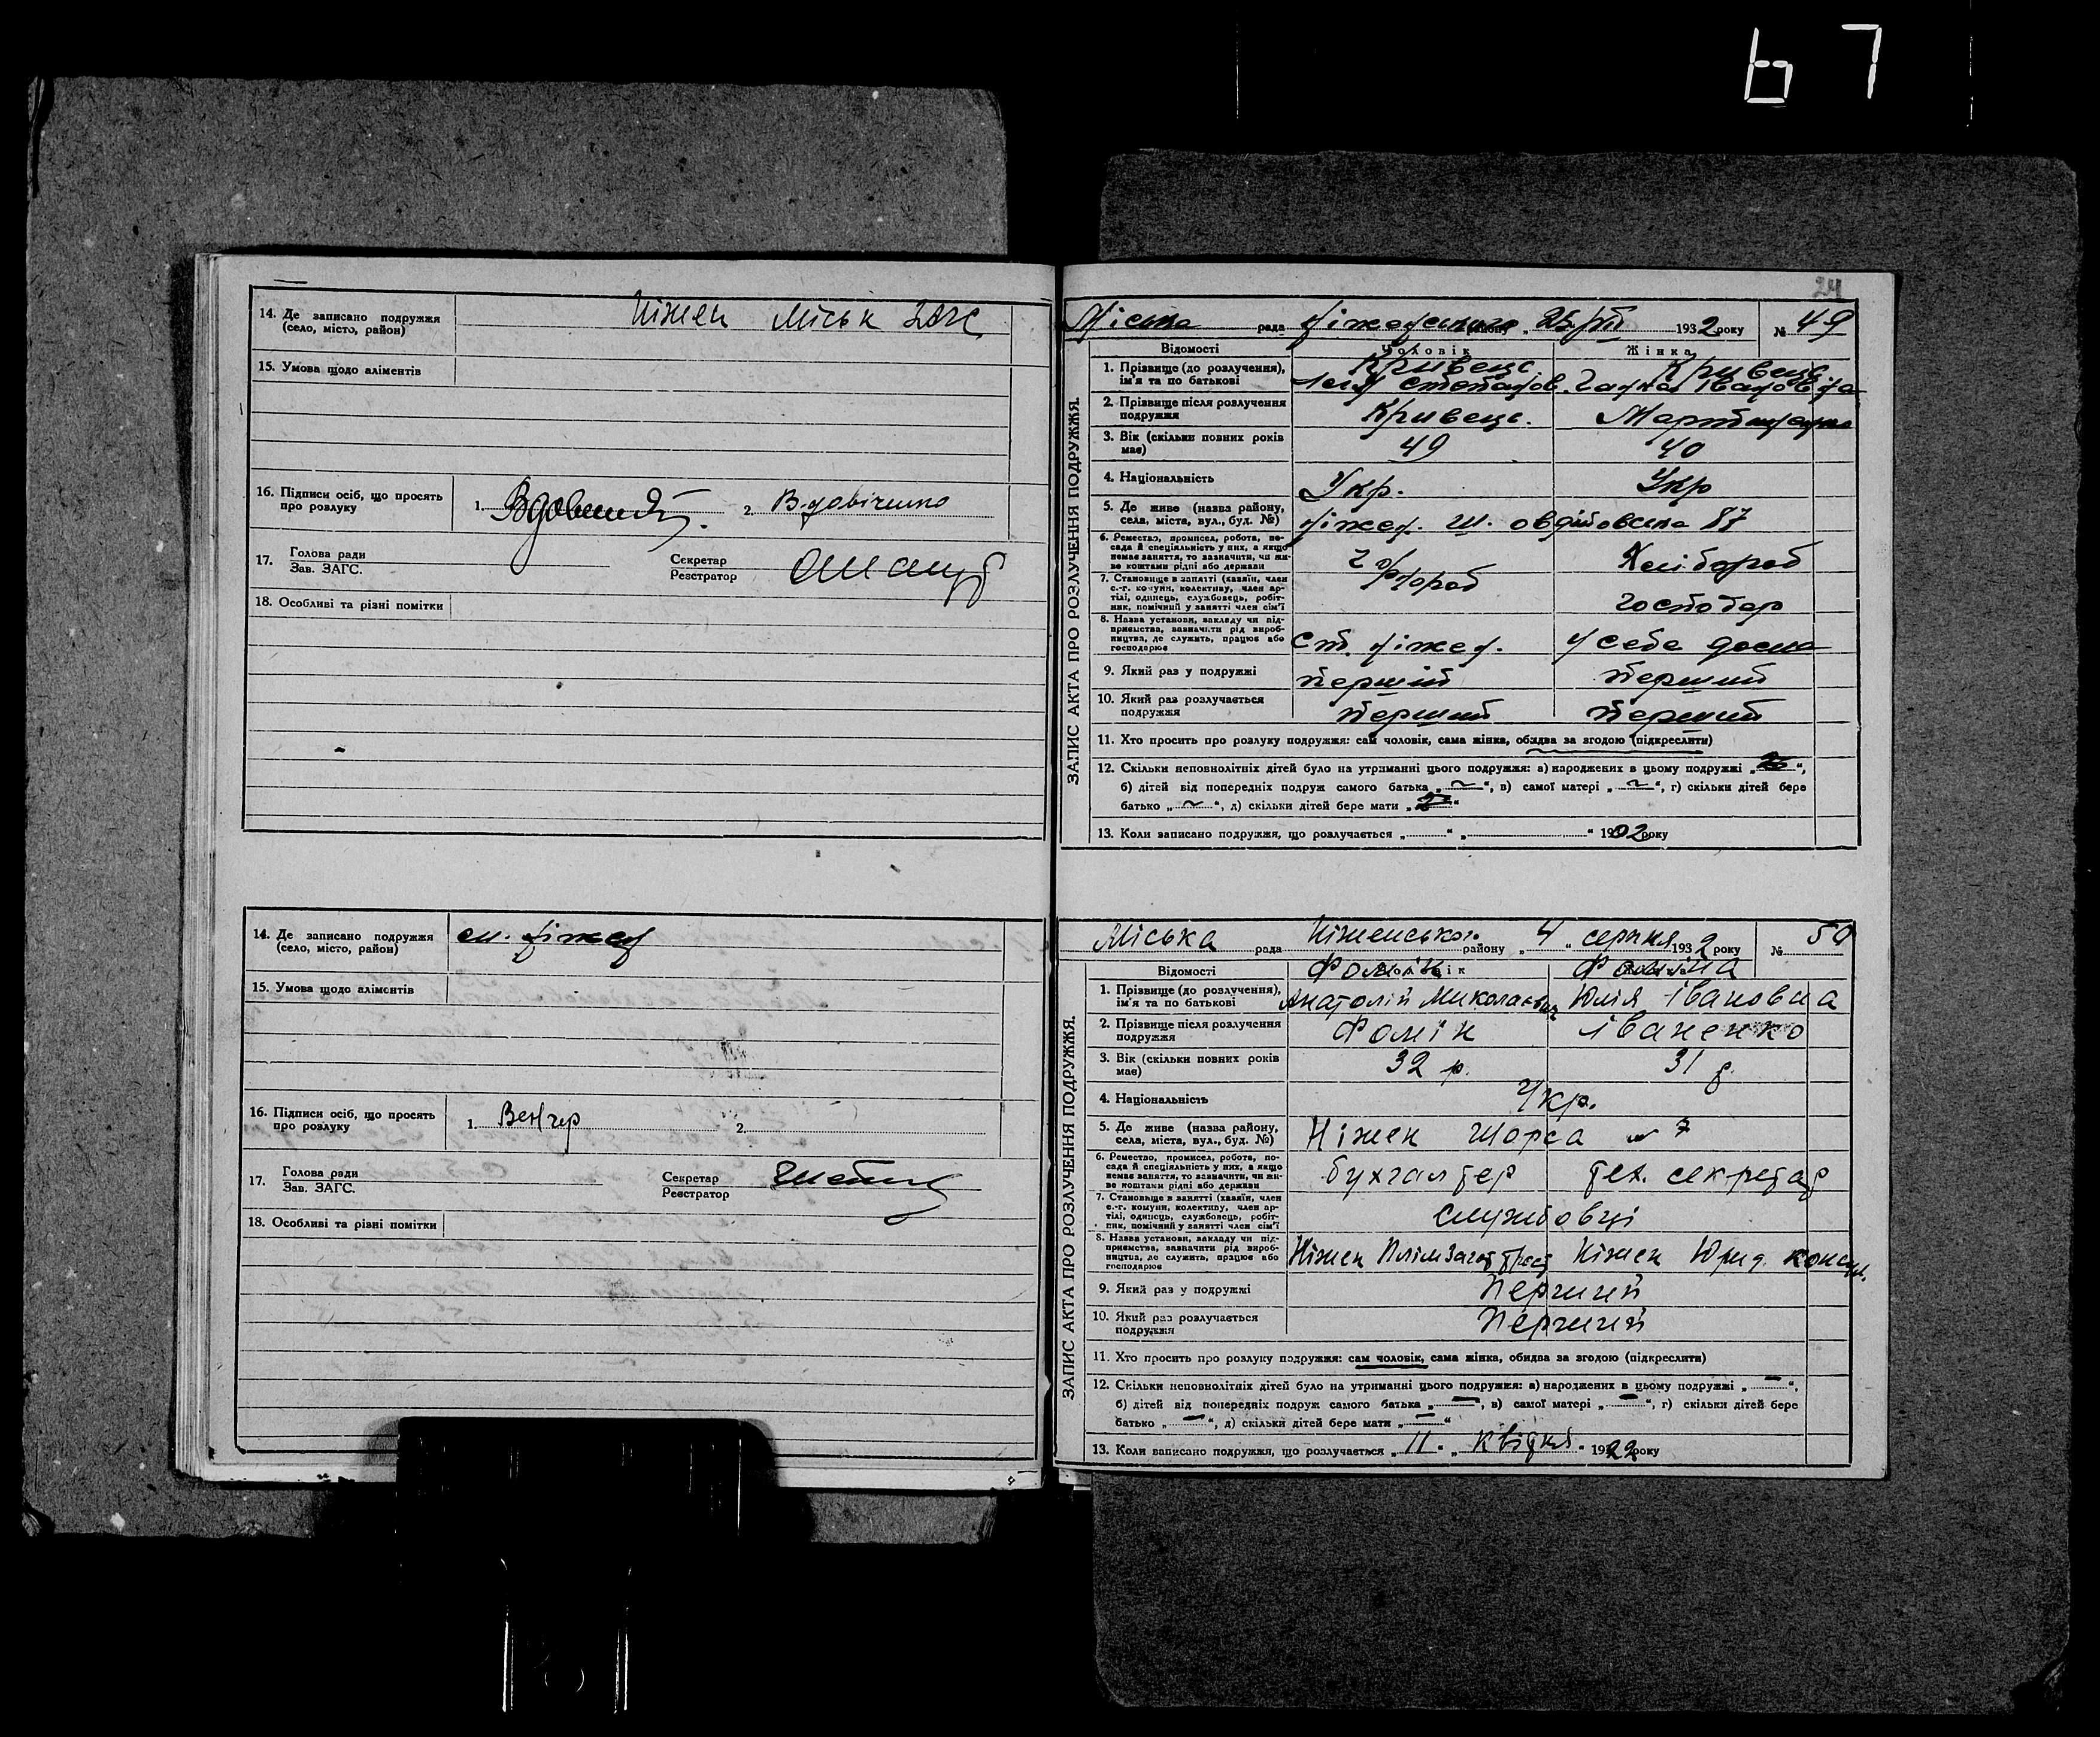 67
14. Де записано подружжя (село, місто, район) Ніжен Міськ ЗАГС
15. Умова щодо аліментів
16. Підписи осіб, що просять про розлуку 1. 2. Вдовіченко
17. Голова ради Зав. ЗАГС. Секретар Реєстратор
18. Особливі та різні помітки
14. Де записано подружжя (село, місто, район) м. Ніжен
15. Умова щодо аліментів
16. Підписи осіб, що просять про розлуку 1. Венгер 2.
17. Голова ради Зав. ЗАГС. Секретар Реєстратор
18. Особливі та різні помітки
24
ЗАПИС АКТА ПРО РОЗЛУЧЕННЯ ПОДРУЖЖЯ.
Міська рада Ніженського району „ 25 1932 року № 49
Відомості Чоловік Жінка
1. Прізвище (до розлучення), ім'я та по батькові Кривець Степанов. Кривець Галена Івановна
2. Прізвище після розлучення подружжя Кривець.
3. Вік (скільки повних років має) 49 40
4. Національність Укр. Укр
5. Де живе (назва району, села, міста, вул., буд. №) Ніжен. ш. овдіївська 87
6. Ремество, промисел, робота, посада й спеціяльність у них, а якщо немає заняття, то зазначити, чи живе коштами рідні або держави Хлібороб
7. Становище в занятті (хазяїн, член с.-г. комуни, колективу, член артілі, одинець, службовець, робітник, помічний у занятті член сім'ї господар
8. Назва установи, закладу чи підприємства, зазначити рід виробництва, де служить, працює або господарює Ст. Ніжен. У себе дома
9. Який раз у подружжі перший перший
10. Який раз розлучається подружжя перший перший
11. Хто просить про розлуку подружжя: сам чоловік, сама жінка, обидва за згодою (підкреслити)
12. Скільки неповнолітніх дітей було на утриманні цього подружжя: а) народжених в цьому подружжі „ “,
б) дітей від попередніх подруж самого батька „ ~ “, в) самої матері „ ~ “, г) скільки дітей бере
батько „ ~ “, д) скільки дітей бере мати „ 2 “
13. Коли записано подружжя, що розлучається „ “ „ “ 1902 року
ЗАПИС АКТА ПРО РОЗЛУЧЕННЯ ПОДРУЖЖЯ.
Міська рада Ніженськог. району „ 4 “ серпня 1932 року № 50
Відомості Чоловік
1. Прізвище (до розлучення), ім'я та по батькові Фомін Анатолій Миколаєвич Фоміна Юлія Івановна
2. Прізвище після розлучення подружжя Фомін Іваненко
3. Вік (скільки повних років має) 32 р. 31 р.
4. Національність Укр.
5. Де живе (назва району, села, міста, вул., буд. №) Ніжен Щорса № 7
6. Ремество, промисел, робота, посада й спеціяльність у них, а якщо немає заняття, то зазначити, чи живе коштами рідні або держави бухгалтер тех. секретар
7. Становище в занятті (хазяїн, член с.-г. комуни, колективу, член артілі, одинець, службовець, робітник, помічний у занятті член сім'ї службовці
8. Назва установи, закладу чи підприємства, зазначити рід виробництва, де служить, працює або господарює Ніжен Ніжен Юрид. консул.
9. Який раз у подружжі Перший
10. Який раз розлучається подружжя Перший
11. Хто просить про розлуку подружжя: сам чоловік, сама жінка, обидва за згодою (підкреслити)
12. Скільки неповнолітніх дітей було на утриманні цього подружжя: а) народжених в цьому подружжі „ — “,
б) дітей від попередніх подруж самого батька „ — “, в) самої матері „ — “, г) скільки дітей бере
батько „ — “, д) скільки дітей бере мати „ — “
13. Коли записано подружжя, що розлучається „ 11 “ „ квітня “ 1922 року